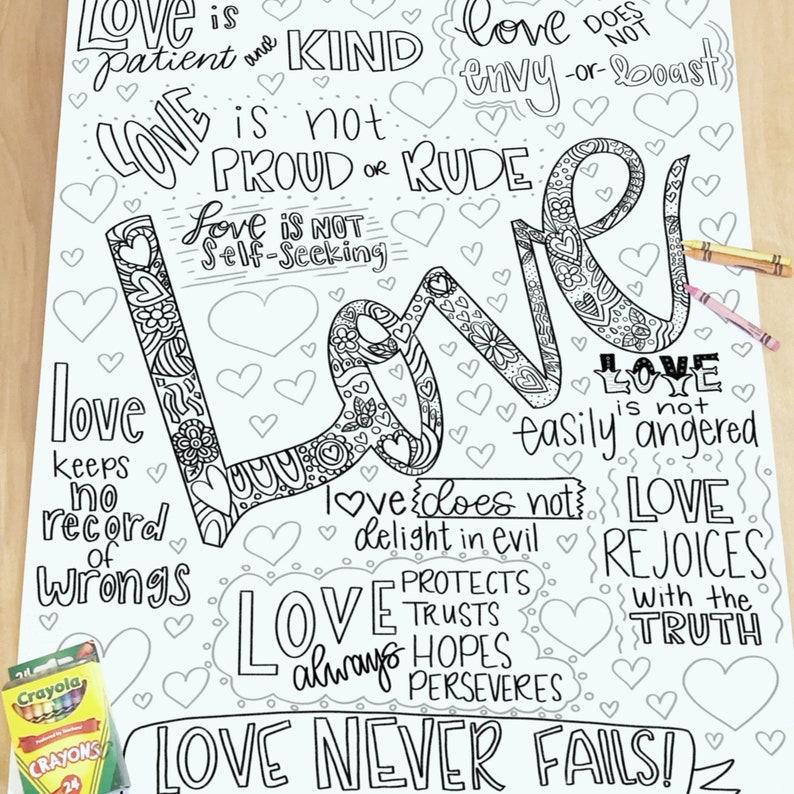 LOVE is
patient and KIND
love DOES NOT
envy -or- boast
LOVE is not
PROUD OR RUDE
Love is NOT
Self-Seeking
Love
LOVE
is not
easily angered
love
keeps
no
record
of
wrongs
love does not
delight in evil
LOVE
REJOICES
with the
TRUTH
LOVE always
PROTECTS
TRUSTS
HOPES
PERSEVERES
LOVE NEVER FAILS!
24
Crayola
CRAYONS
24